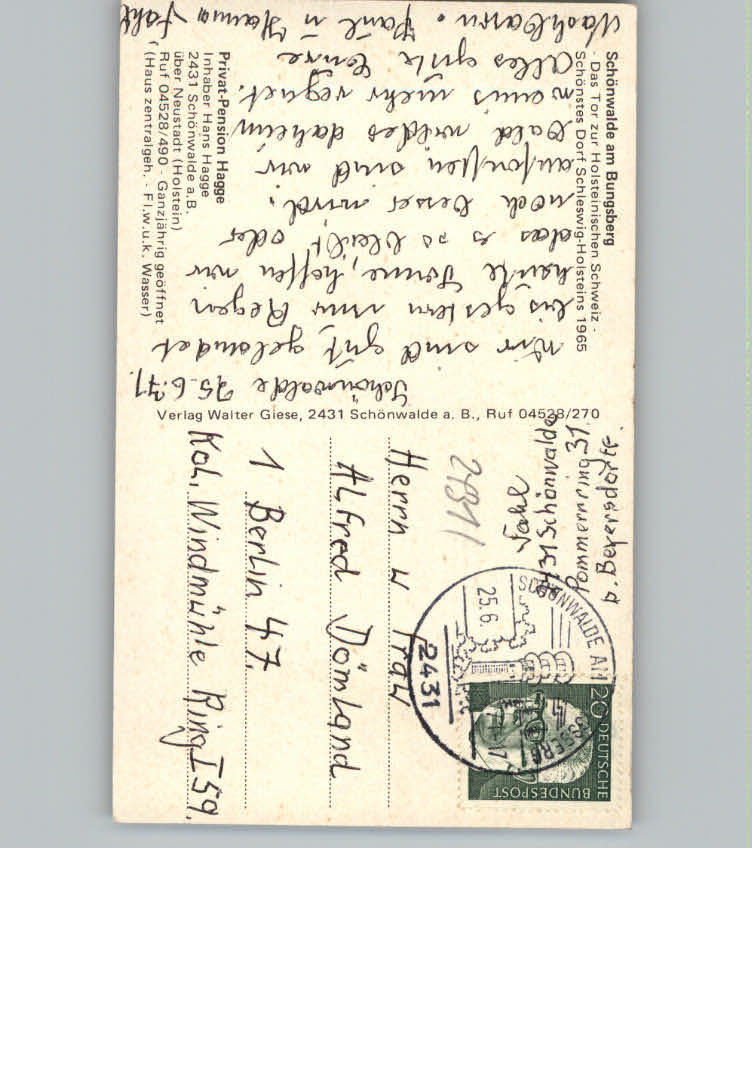 Schönwalde am Bungsberg
- Das Tor zur Holsteinischen Schweiz -
Schönstes Dorf Schleswig-Holsteins 1965
Schönwalde 25.6.71.
Wir sind gut gelandet
bis gestern nur Regen
heute Sonne, hoffen wir
das es so bleibt oder
noch besser wird.
ansonsten sind wir
bald wieder daheim
wenns mehr regnet.
Alles gute Eure
Nachbarn. Paul u Hanna Fahl
Privat-Pension Hagge
Inhaber Hans Hagge
2431 Schönwalde a.B.
über Neustadt (Holstein)
Ruf 04528/490 - Ganzjährig geöffnet
(Haus zentralgeh. - Fl.w.u.k. Wasser)
Verlag Walter Giese, 2431 Schönwalde a. B., Ruf 04528/270
Fahl
Schönwalde
Pommernring 31.
2431
SCHÖNWALDE AM
25.6.
2431
20 DEUTSCHE
BUNDESPOST
Herrn u Frau
Alfred Dömland
1 Berlin 47.
Kol. Windmühle Ring I 59.